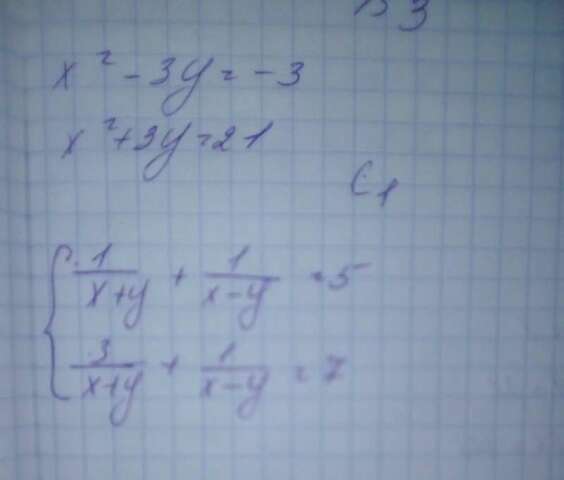 В 3
x² - 3y = -3
x² + 3y = 21
C1
{ 1/(x+y) + 1/(x-y) = 5
3/(x+y) + 1/(x-y) = 7